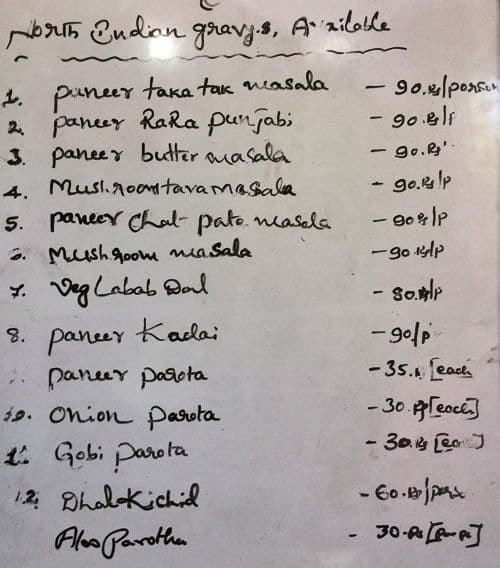 North Indian gravys, Available
1. paneer taka tak masala - 90.Rs/person
2. paneer RaRa punjabi - 90.Rs/P
3. paneer butter masala - 90.Rs
4. Mushroom tava masala - 90.Rs/P
5. paneer chat pata masala - 90Rs/P
6. Mushroom masala - 90 Rs/P
7. Veg Labab Dal - 80.Rs/P
8. paneer Kadai - 90/P
paneer parota - 35. [each
10. onion parota - 30.Rs [each]
11. Gobi parota - 30.Rs
12. Dhal Kichid - 60.Rs/pers
Aloo Parotha - 30-Rs